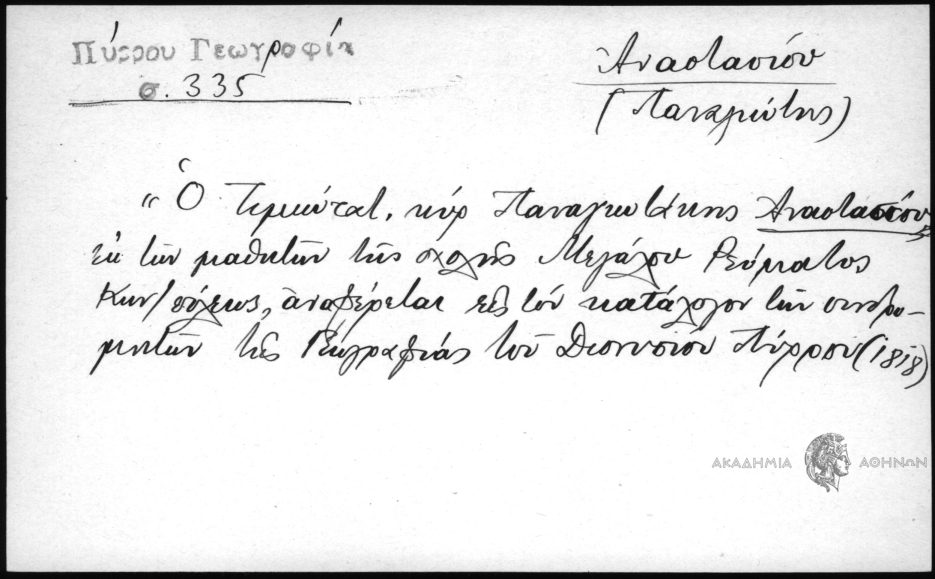 Πύρρου Γεωγραφία
σ. 335
Αναστασίου
(Παναγιώτης)
"Ὁ Τιμιώτατ. κύρ Παναγιωτάκης Αναστασίου
ἐκ τῶν μαθητῶν τῆς σχολῆς Μεγάλου Ρεύματος
Κων/πόλεως, ἀναφέρεται εἰς τόν κατάλογον τῶν συνδρο-
μητῶν τῆς Γεωγραφίας τοῦ Διονυσίου Πύρρου (1818)
ΑΚΑΔΗΜΙΑ ΑΘΗΝΩΝ